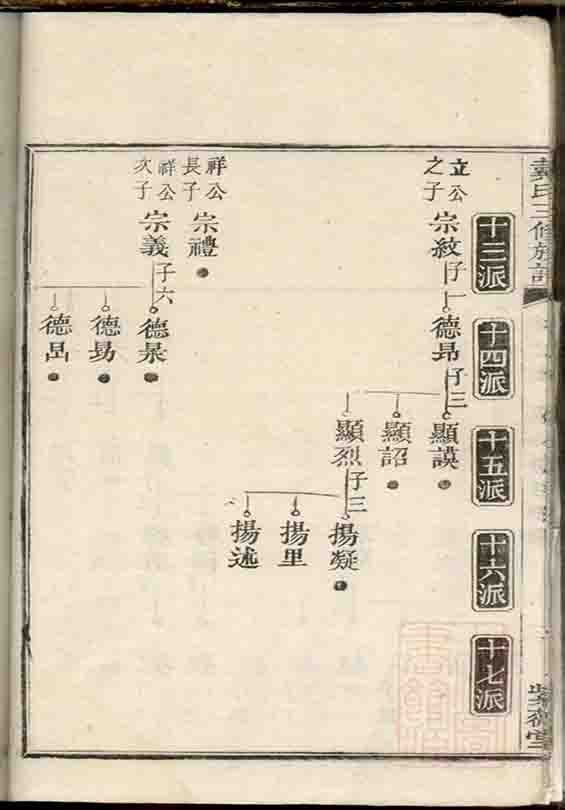 氏三修族譜
十三派
十四派
十五派
十六派
十七派
立公之子
宗紋
子一
德昂
子三
顯謨
顯詔
顯烈
子三
揚凝
揚里
揚述
祥公長子
宗禮
祥公次子
宗義
子六
德杲
德昜
德昌